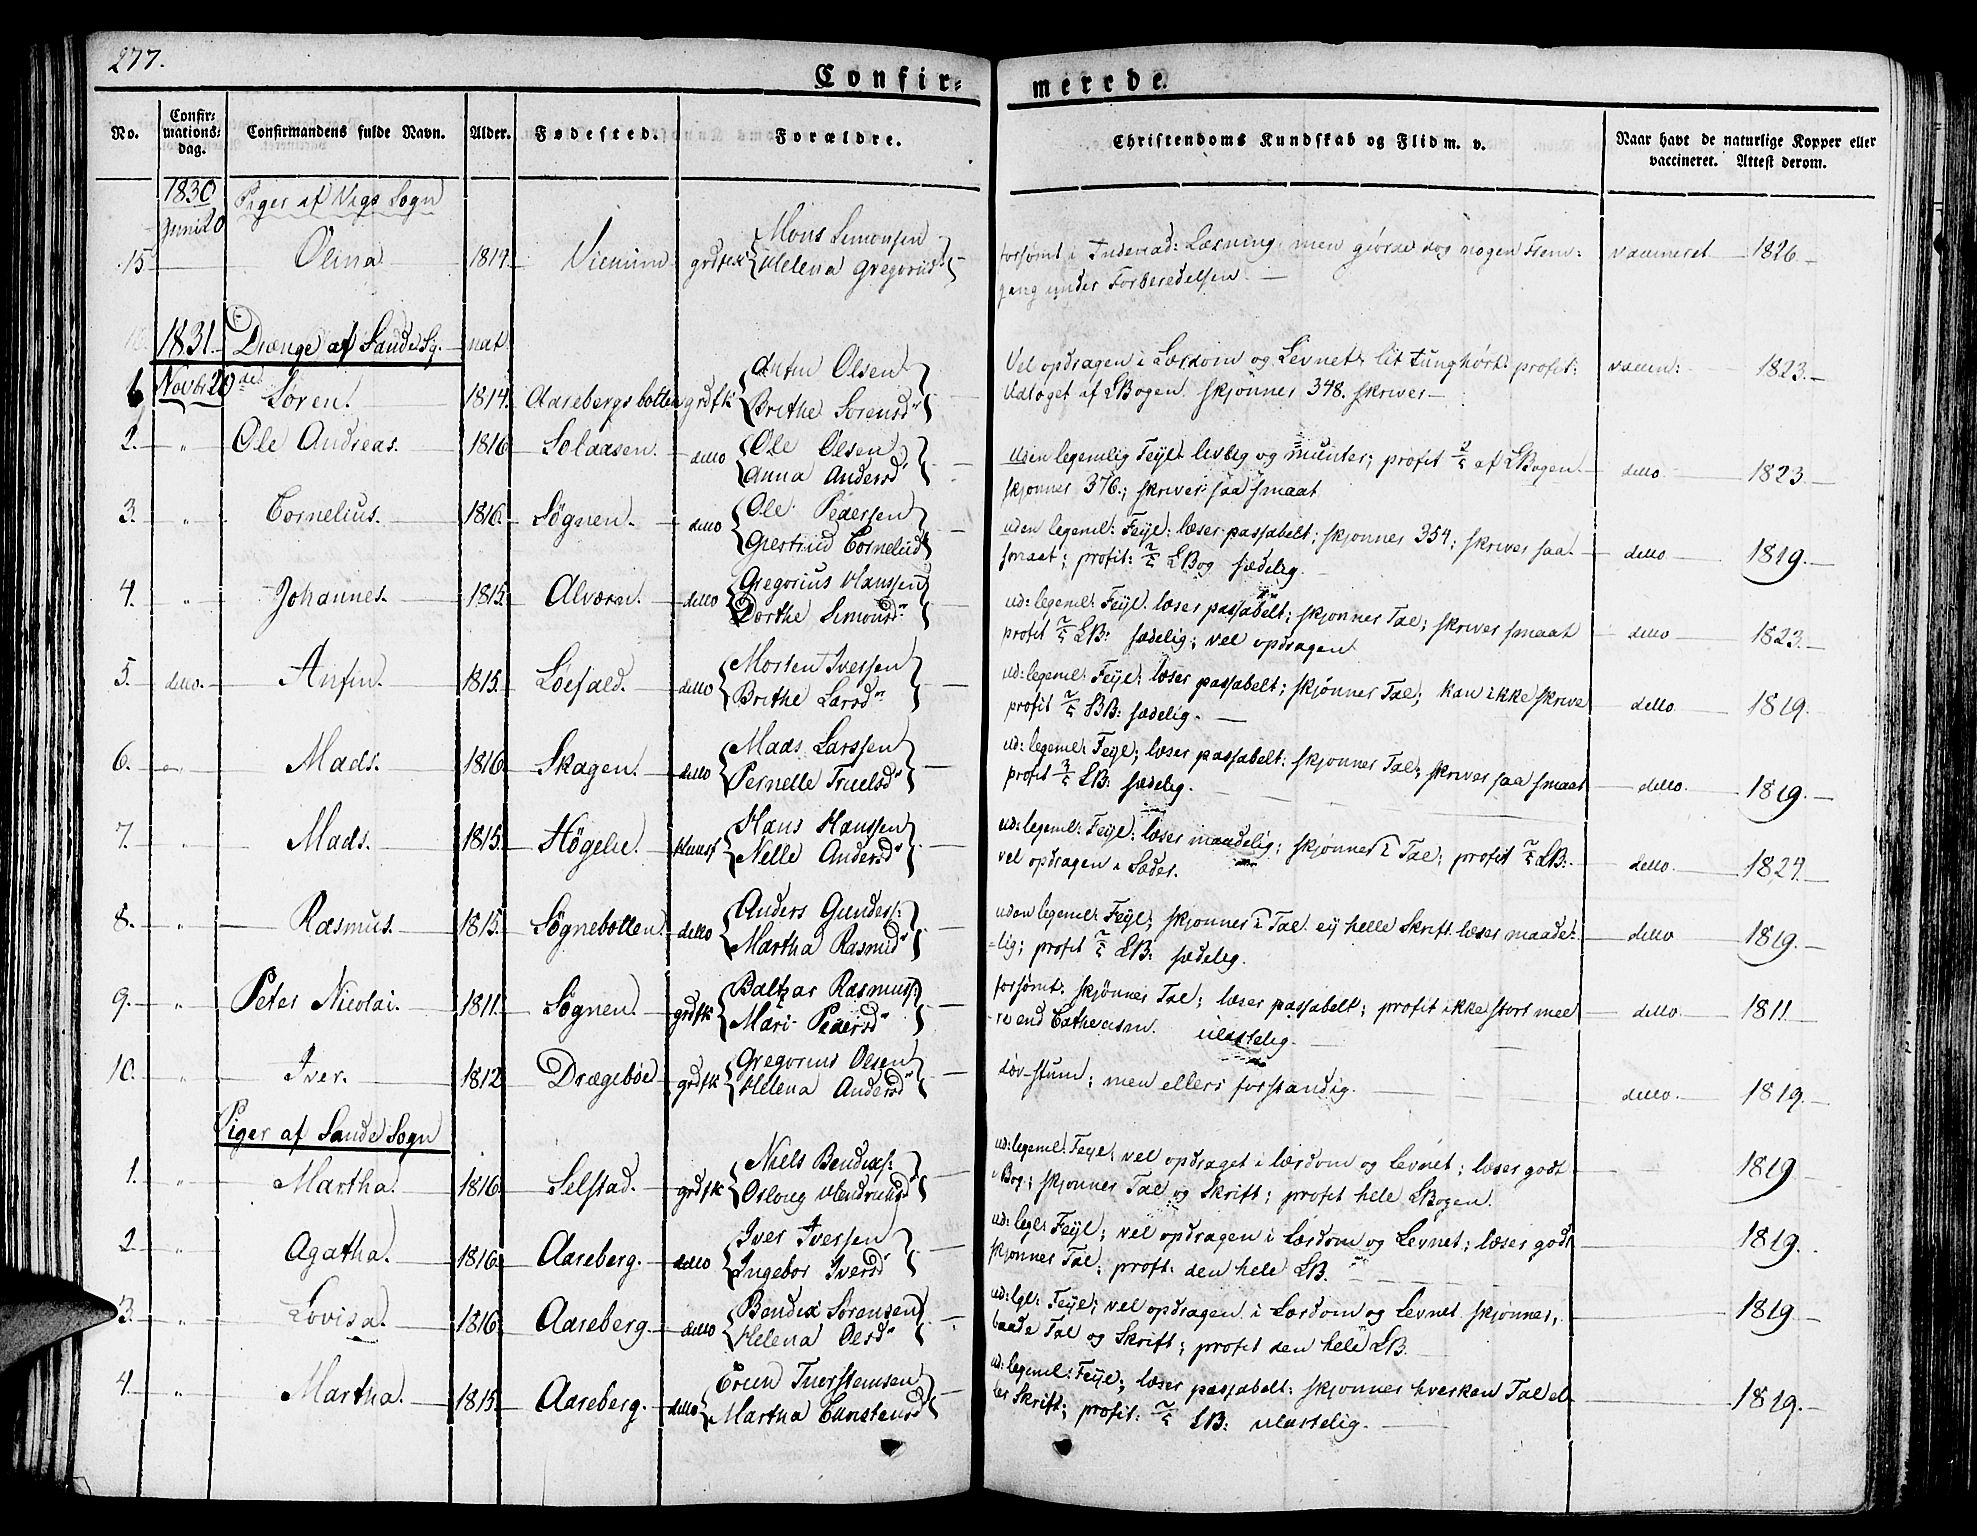 277.
Confir= merrede.
No. Confir=mations=dag. Confirmandens fulde Navn. Alder. Fødested. Forældre. Christendoms Kundskab og Flid m. v. Naar havt de naturlige Kopper eller vaccineret. Attest derom.
1830 Piger af Vigs Sogn
Juni 20
15 Olina 1814 grdfk Mons Simonsen
Helena Gregoriid forsømt i Læsning, men giorde dog nogen Frem=
gang under Forberedelsen. — 1826.
1831. Drænge af Sande Sg. nat.
Novbr 20de
1 Søren. 1814. Aarebergsbotten grdfk Anfin Olsen
Brithe Sørensd Vel opdragen i Lærdom og Levnet, lit tunghørt. profit:
Udtoget af LBogen. skjønner 348. skriver — vaccin: 1823.
2. " Ole Andreas. 1816 Solaasen. detto Ole Olsen
Anna Andersd uden legemlig Feyl. livlig og munter; profit 2/5 af LBogen.
skjønner 376.; skriver saa smaat detto 1823.
3. " Cornelius. 1816. Søgnen. detto Ole Pedersen
Giertrud Corneliid uden legeml: Feyl: læser passabelt; skjønner 354; skriver saa
smaat; profit: LBog sædelig. detto 1819.
4. " Johannes. 1815. Alværn. detto Gregorius Hanssen
Dorthe Simonsd ud: legeml: Feyl. læser passabelt; skjønner Tal; skriver smaat
profit LB: sædelig; vel opdragen. detto 1823.
5. detto. Anfin. 1815. Løefald. detto Morten Iversen
Brithe Larsd ud: legeml: Feyl; læser passabelt; skjønner Tal; kan ikke skrive
profit LB: sædelig. — detto. 1819.
6. " Mads. 1816. Skagen. detto Mads Larssen
Pernelle Truelsd ud: legeml: Feyl; læser passabelt: skjønner Tal; skriver saa smaat
profit LB: sædelig. detto. 1819.
7. " Mads. 1815. Høgelie. Huusf Hans Hanssen
Nelle Andersd ud: legeml: Feyl: læser maadelig; skjønner Tal; profit LB:
vel opdragen i Sæder. detto. 1824.
8. " Rasmus. 1815. Søgnebotten. detto Anders Gunders:
Martha Rasmusd uden legeml: Feyl; skjønner Tal ey helle Skrift. læser maade=
=lig; profit LB: sædelig. detto 1819.
9. " Peter Nicolai. 1811. Søgnen. grdfk Baltzar Rasmuss:
Mari Pedersd forsømt: skjønner Tal; læser passabelt; profit ikke stort mee
re end Cathecism. ulastelig. detto. 1811.
10. " Iver. 1812 Drægebøe grdfk Gregorius Olsen
Helena Andersd døv-stum; men ellers forstandig. detto. 1819.
Piger af Sande Sogn
1. " Martha. 1816. Selstad. grdfk Niels Bendixs:
Osloug Hendrichsd ud: legeml: Feyl: vel opdraget i lærdom og Levnet; læser godt
i Bog; skjønner Tal og Skrift; profit hele LBogen. 1819.
2 " Agatha. 1816. Aareberg. detto Iver Iverssen
Ingebor Iversd ud: legl: Feyl; vel opdragen i Lærdom og Levnet; læser godt
skjønner Tal; profit: den hele LB. 1819.
3. " Lovisa. 1816. Aareberg detto Bendix Sørensen
Helena Olsd ud: lgl: Feyl; vel opdragen i Lærdom og Levnet skjønner,
baade Tal og Skrift; profit den hele LB. 1819.
4. " Martha. 1815. Aareberg. detto
Martha Christensd ud: legeml: Feyl; læser passabelt: skjønner hverken Tal el
ler Skrift; profit: LB: ulastelig. 1819.